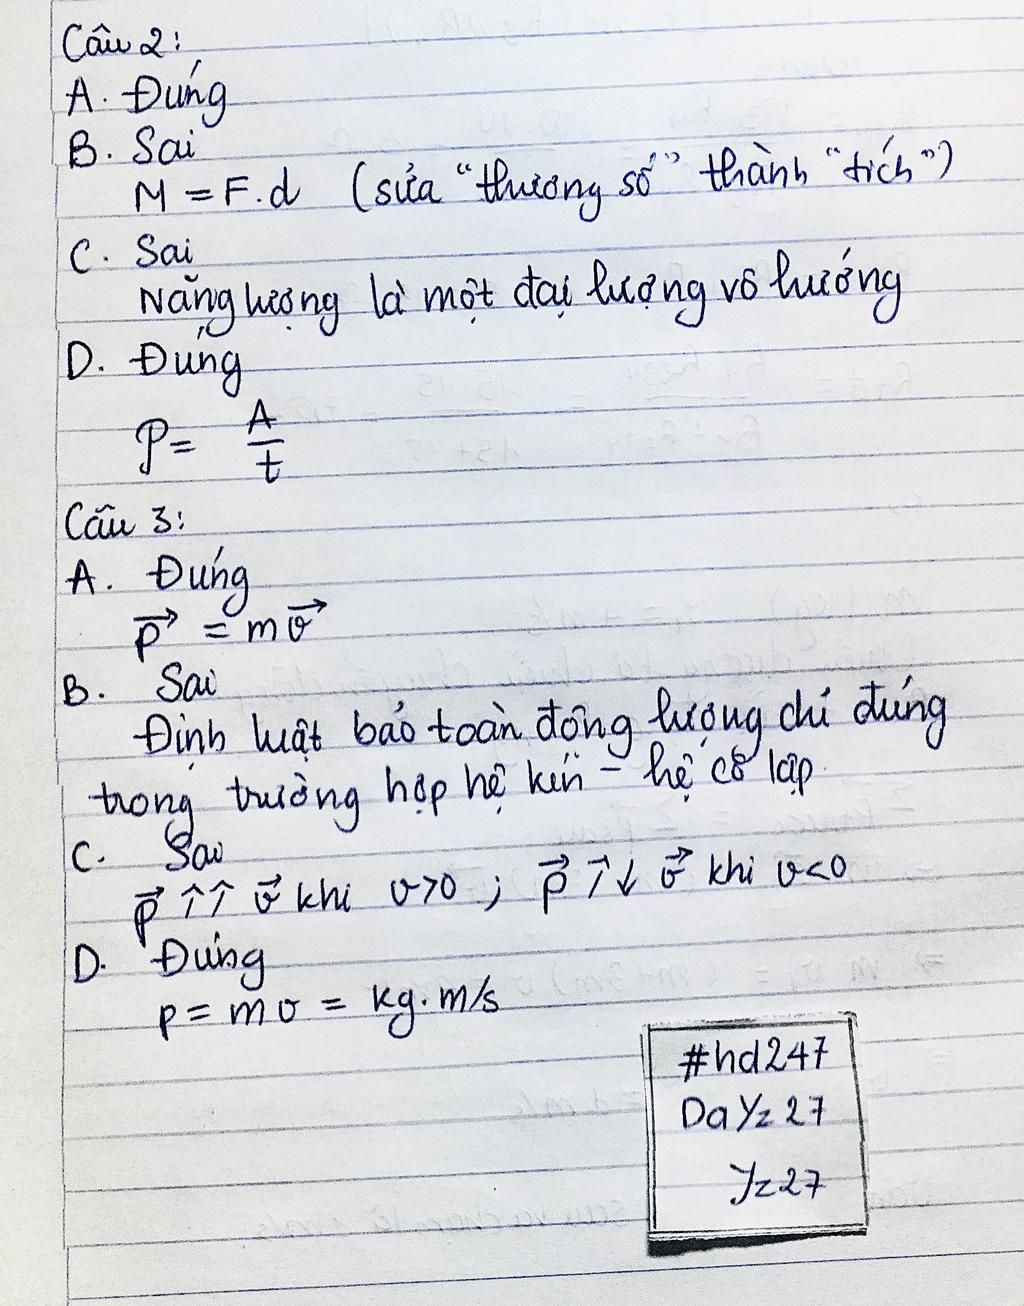 Câu 2:
A. Đúng
B. Sai
M = F.d (sửa "thương số" thành "tích")
C. Sai
Năng lượng là một đại lượng vô hướng
D. Đúng
𝒫 = A/t
Câu 3:
A. Đúng
p⃗ = mv⃗
B. Sai
Định luật bảo toàn động lượng chỉ đúng
trong trường hợp hệ kín - hệ cô lập.
C. Sai
p⃗ ↑↑ v⃗ khi v>0 ; p⃗ ↑↓ v⃗ khi v<0
D. Đúng
p = mv = kg.m/s
#hd247
DaYz27
Yz27